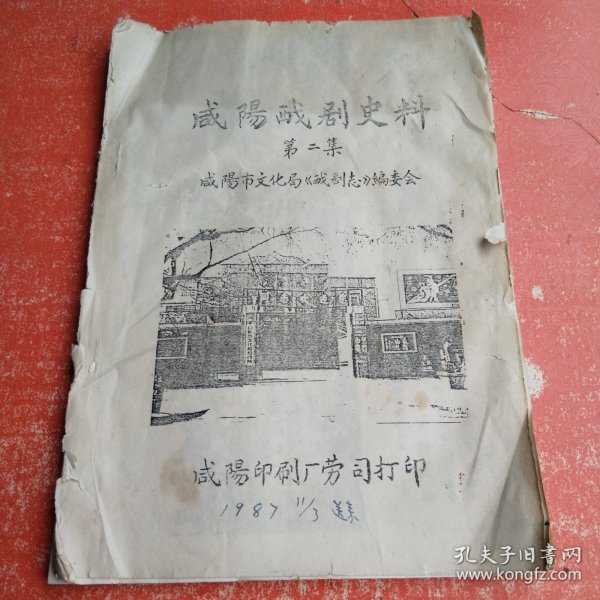 咸陽戏剧史料
第二集
咸陽市文化局《戏剧志》编委会
咸陽印刷厂劳司打印
1987 11/3
孔夫子旧书网
www.kongfz.com